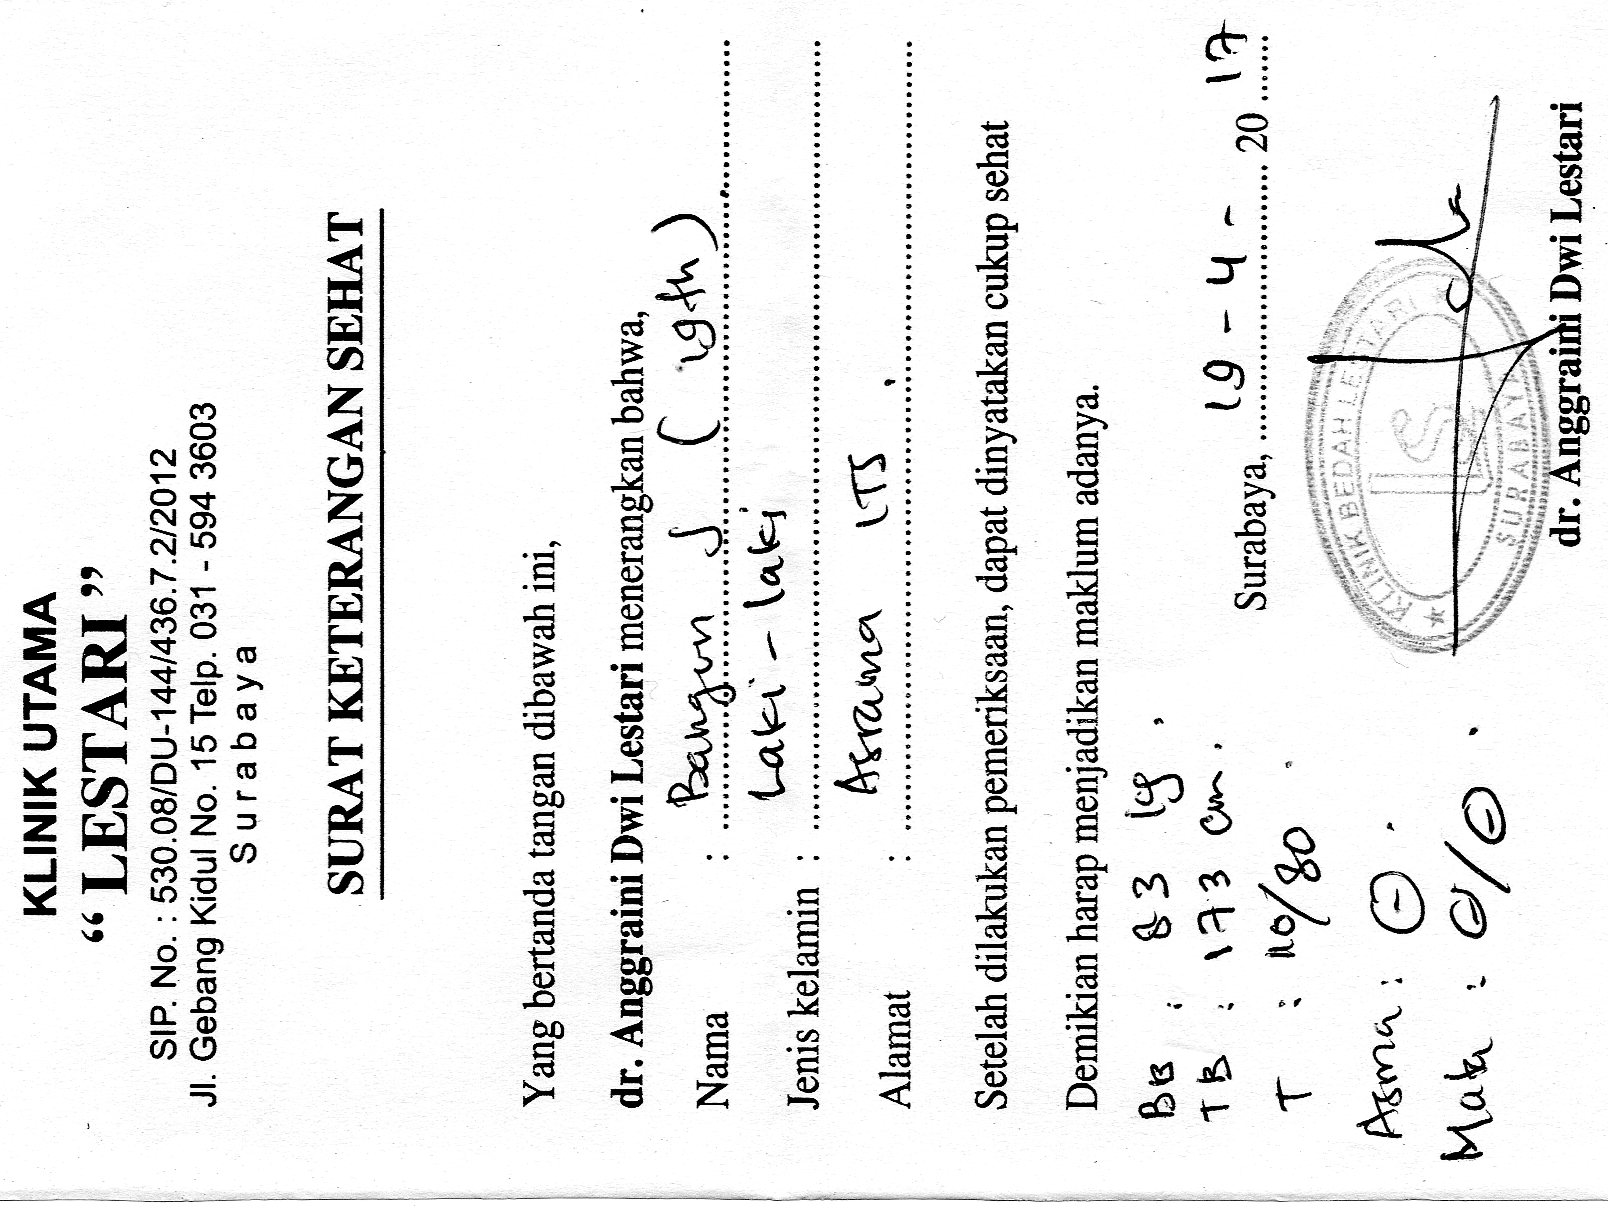 KLINIK UTAMA
“ LESTARI ”
SIP. No. : 530.08/DU-144/436.7.2/2012
Jl. Gebang Kidul No. 15 Telp. 031 - 594 3603
S u r a b a y a
SURAT KETERANGAN SEHAT
Yang bertanda tangan dibawah ini,
dr. Anggraini Dwi Lestari menerangkan bahwa,
Nama : Bangun S ( 19th )
Jenis kelamin : Laki - laki
Alamat : Asrama ITS .
Setelah dilakukan pemeriksaan, dapat dinyatakan cukup sehat
Demikian harap menjadikan maklum adanya.
BB : 83 kg .
TB : 173 cm .
T : 110/80 .
Asma : ⊖ .
Mata : ⊖/⊖ .
Surabaya, 19 - 4 - 20 17
KLINIK BEDAH LESTARI
LS
SURABAYA
dr. Anggraini Dwi Lestari